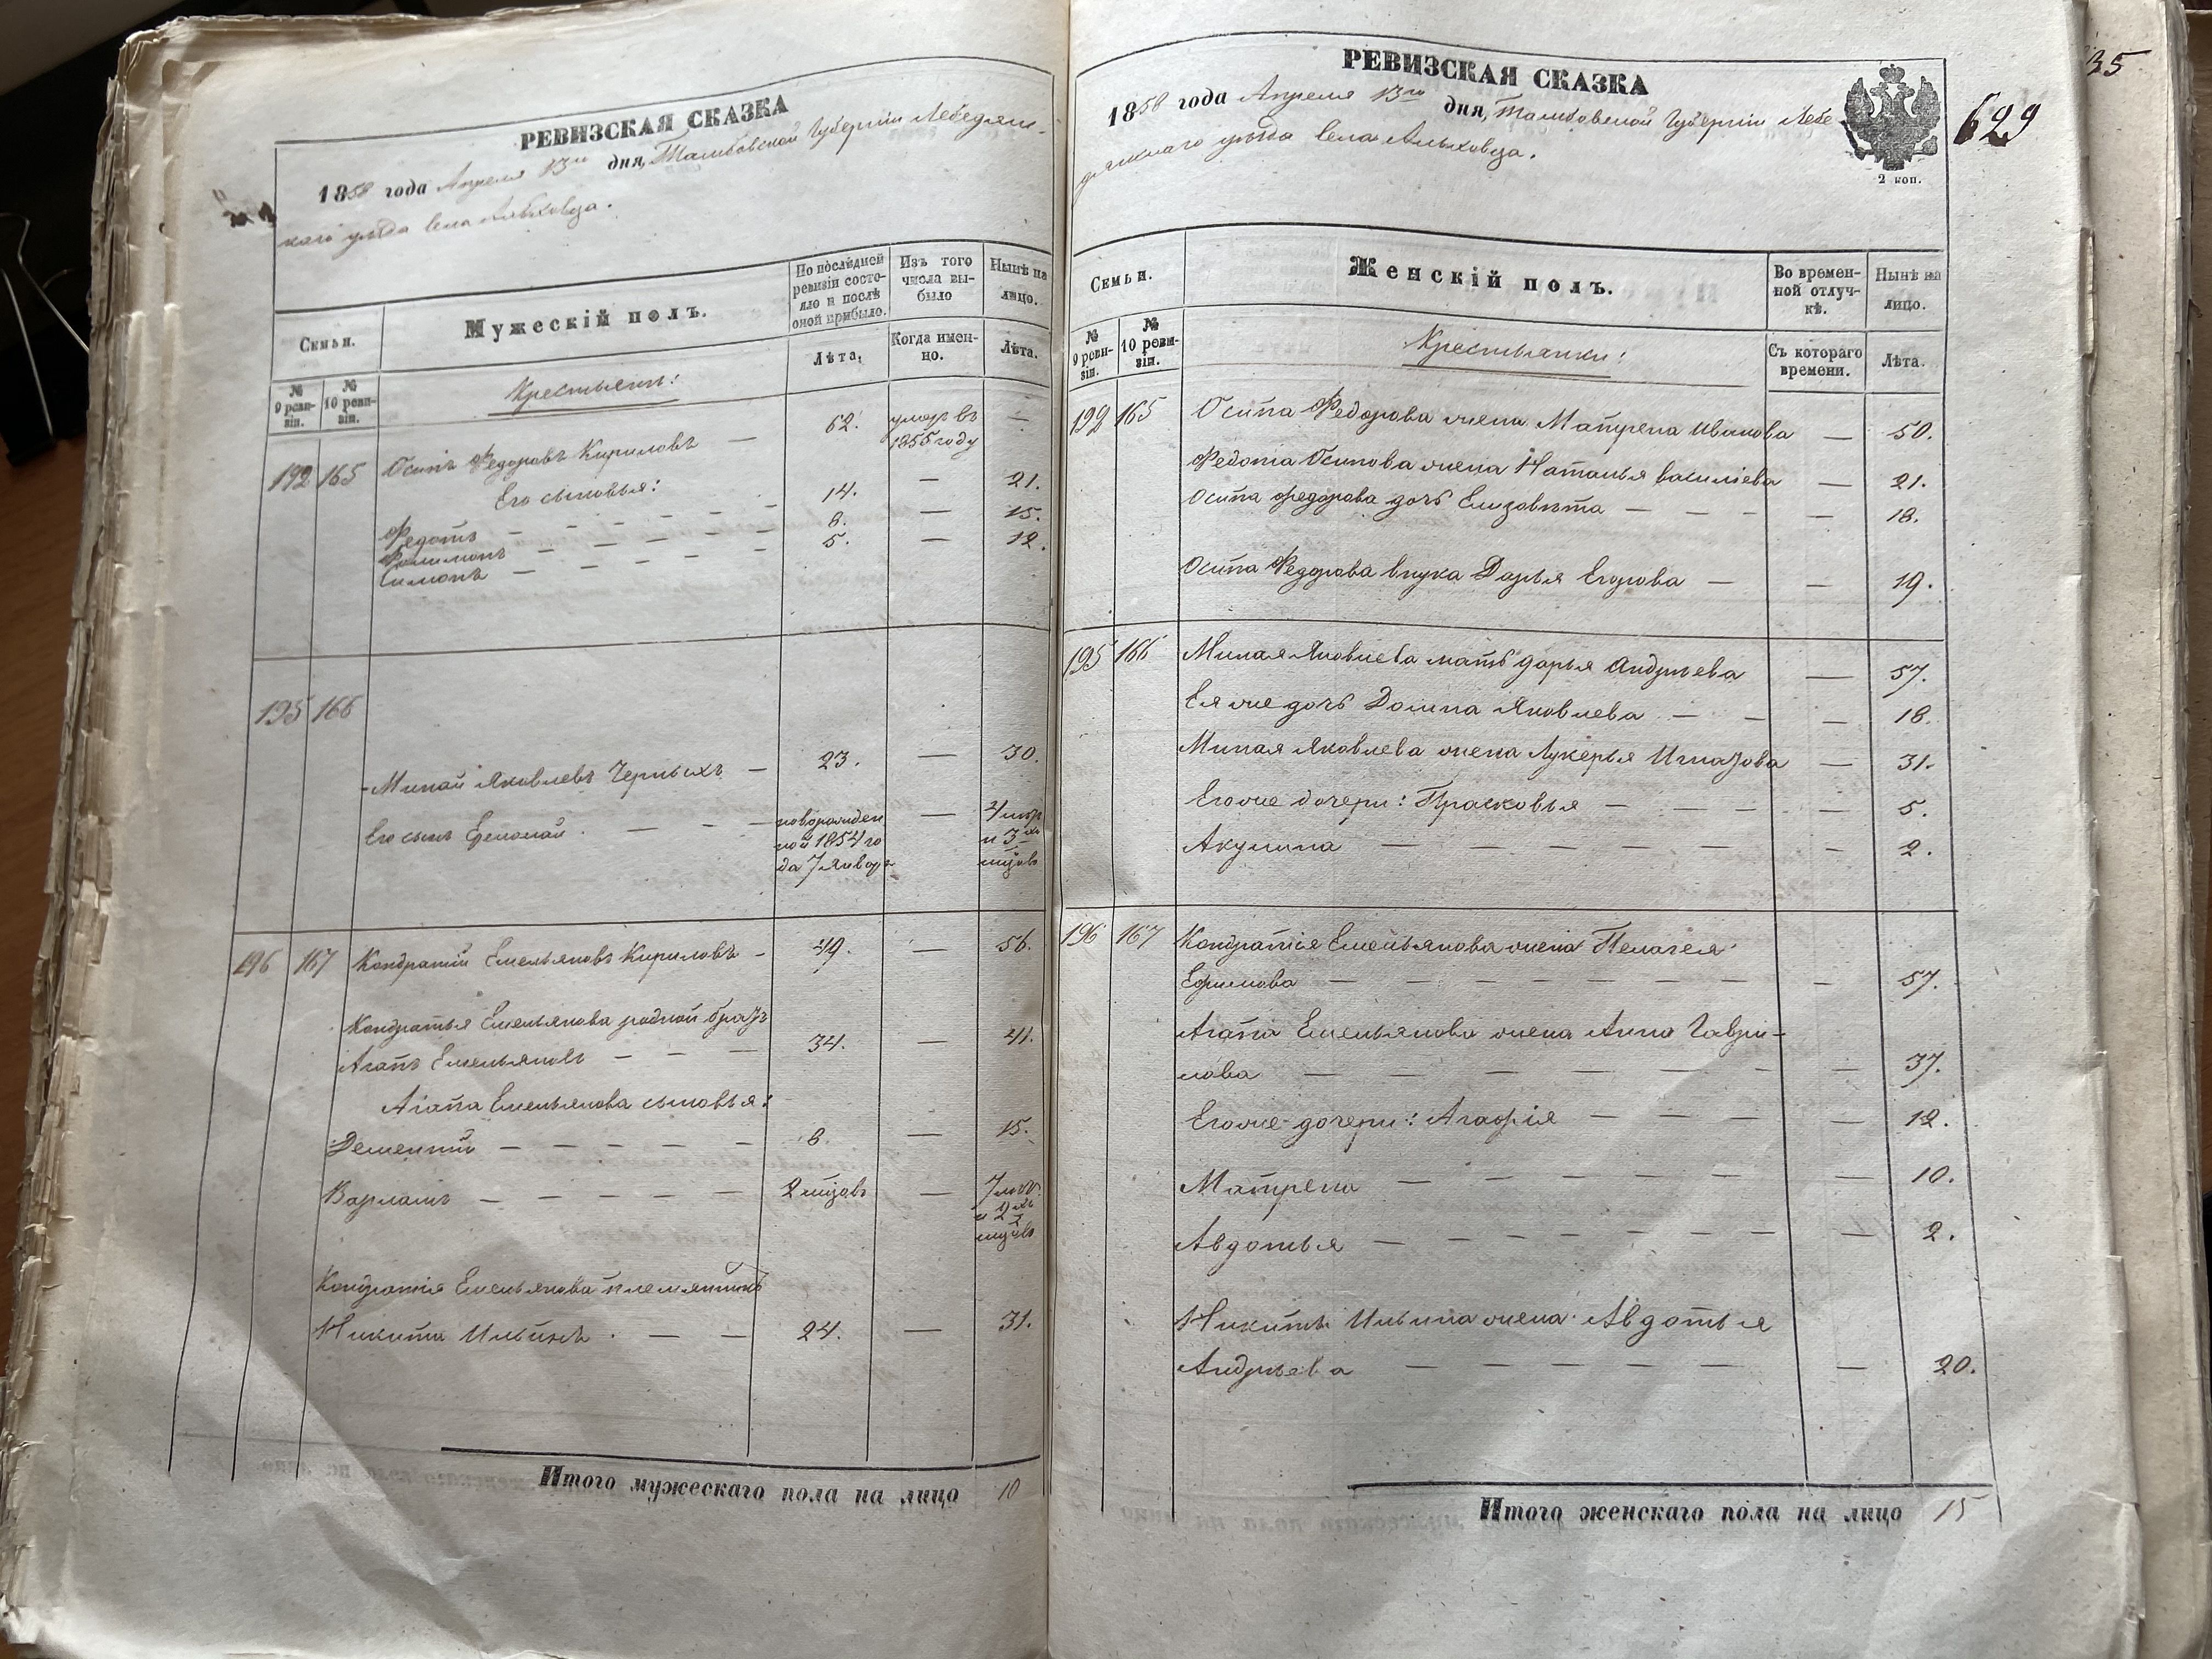 РЕВИЗСКАЯ СКАЗКА
1858 года Апреля 13го дня, Тамбовской Губерніи Лебедян-
скаго уѣзда Села
Семьи.
Мужескій полъ.
По послѣдней ревизіи состо-яло и послѣ оной прибыло.
Изъ того числа вы-было
Нынѣ на лицо.
№ 9 реви-зіи.
№ 10 реви-зіи.
Крестьяне:
Лѣта.
Когда имен-но.
Лѣта.
192 165 Осипъ Федоровъ Кириловъ — 62. умер въ 1855 году —
Его сыновья:
Федотъ — — — — — — 14. — 21.
Филимонъ — — — — — 8. — 15.
Симонъ — — — — — 5. — 12.
195 166
Минай Яковлевъ Черныхъ — 23. — 30.
Его сынъ Ермолай — — — новорожден ной 1854 го да 7 Января — 4 лѣтъ и 3хъ мцовъ
196 167 Кондратій Емельяновъ Кириловъ — 49. — 56.
Кондратья Емельянова родной братъ
Агапъ Емельяновъ — — — 34. — 41.
Агапа Емельянова сыновья:
Дементій — — — — — 8. — 15.
Варламъ — — — — — 2 мцовъ — 7 лѣтъ и 2хъ мцовъ
Кондратія Емельянова племянникъ
Никита Ильинъ — — 24. — 31.
Итого мужескаго пола на лицо 10
РЕВИЗСКАЯ СКАЗКА
1858 года Апреля 13го дня, Тамбовской Губерніи Лебе-
дянскаго уѣзда Села
2 коп.
629
35
Семьи.
Женскій полъ.
Во времен-ной отлуч-кѣ.
Нынѣ на лицо.
№ 9 реви-зіи.
№ 10 реви-зіи.
Крестьянки:
Съ котораго времени.
Лѣта.
192 165 Осипа Федорова жена Матрена Иванова — 50.
Федота Осипова жена Наталья Василіева — 21.
Осипа Федорова дочь Елизавѣта — — — — 18.
Осипа Федорова внука Дарья Егорова — — 19.
195 166 Миная Яковлева мать Дарья Андрѣева — 57.
Ея же дочь Домна Яковлева — — — 18.
Миная Яковлева жена Лукерья Игнатова — 31.
Его же дочери: Прасковья — — — — — 5.
Акулина — — — — — — — 2.
196 167 Кондратія Емельянова жена Пелагея
Ефимова — — — — — — — — 57.
Агапа Емельянова жена Анна Гаври-
лова — — — — — — — — 37.
Его же дочери: Агафія — — — — 12.
Матрена — — — — — — 10.
Авдотья — — — — — — — — 2.
Никиты Ильина жена Авдотья
Андрѣева — — — — — — 20.
Итого женскаго пола на лицо 15